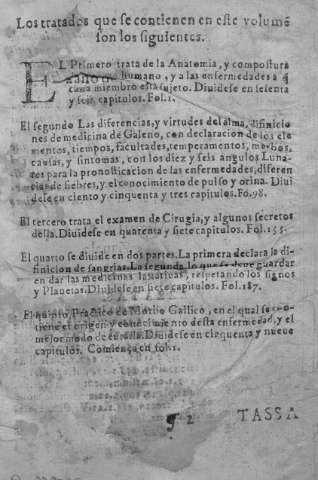 Los tratados que se contienen en este volumẽ
son los siguientes.
EL Primero trata de la Anatomia, y compostura
humano, y a las enfermedades a q̃
cada miembro está sujeto. Diuidese en sesenta
y seis capitulos. Fol.1.
El segundo Las diferencias, y virtudes del alma, difinicio
nes de medicina de Galeno, con declaracion de los ele
mentos, tiempos, facultades, temperamentos, 
causas, y sintomas, con los diez y seis angulos Luna-
res para la pronosticacion de las enfermedades, diferen
cias de fiebres, y el conocimiento de pulso y orina. Diui
dese en ciento y cinquenta y tres capitulos. Fo.98.
El tercero trata el examen de Cirugia, y algunos secretos
della. Diuidese en quarenta y siete capitulos. Fol.155.
El quarto se diuide en dos partes. La primera declara la di-
finicion de sangrias. La segunda lo que se deue guardar
en dar las medicinas laxatiuas, respetando los signos
y Planetas. Diuidese en siete capitulos. Fol.187.
El quinto, Practico de Morbo Gallico, en el qual se cõ-
tiene el origen y conocimiento desta enfermedad, y el
mejor modo de curarla. Diuidese en cinquenta y nueue
capitulos. Comiença en fol.1.
¶ 2
TASSA